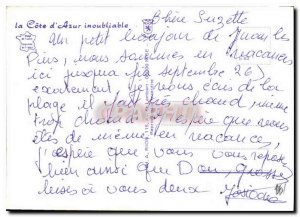 la Côte d'Azur inoubliable
Chère Suzette
Un petit bonjour de Juan les
Pins, nous sommes en vacances
ici jusqu'a septembre 26
nous de la
plage il fait très chaud même
trop chaud j'espère que vous
êtes de même en vacance,
j'espère que vous vous repose
bien ainsi que
bises à vous deux